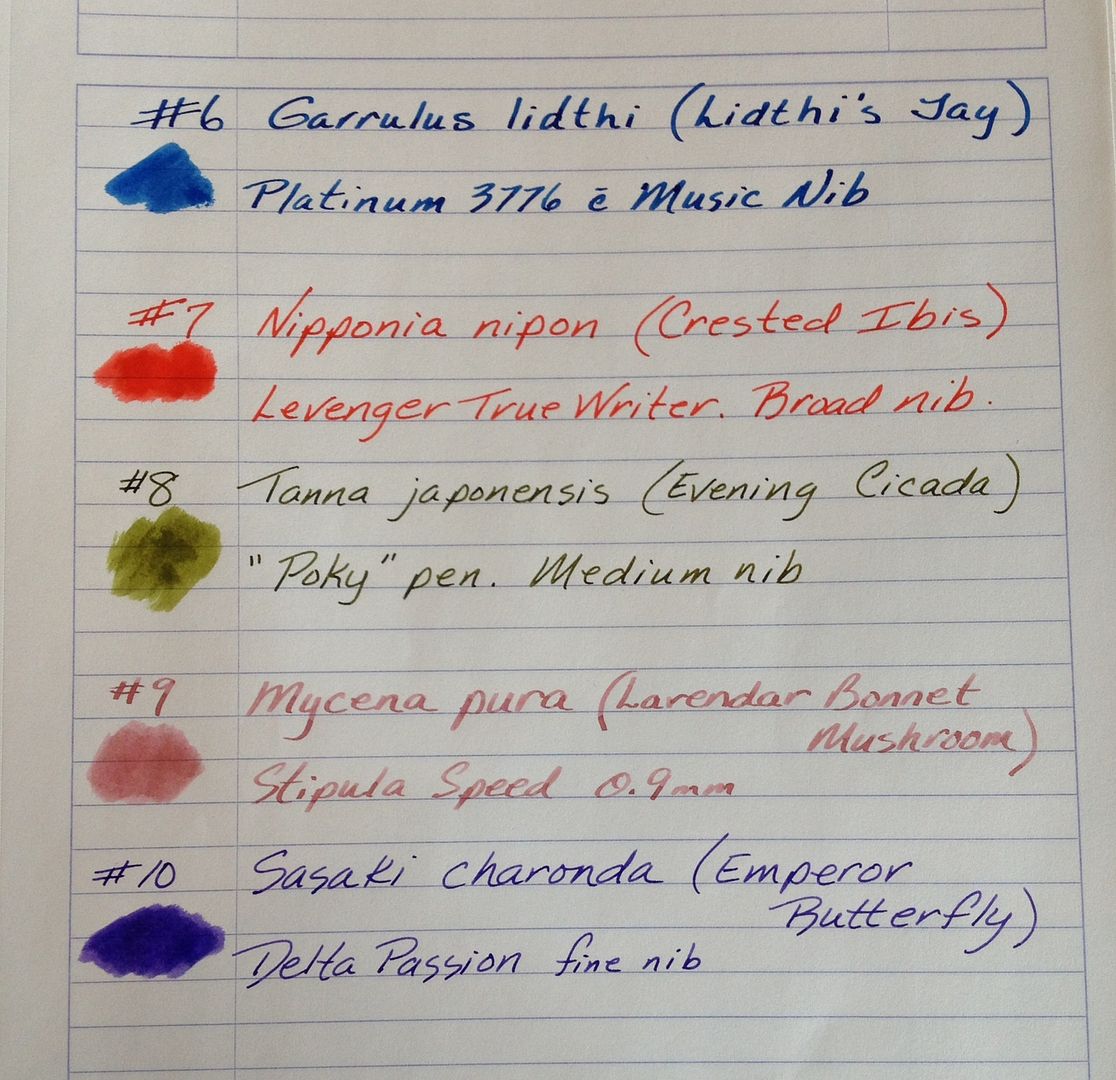 #6 Garrulus lidthi (Lidthi's Jay)
Platinum 3776 c̄ Music Nib
#7 Nipponia nipon (Crested Ibis)
Levenger True Writer. Broad nib.
#8 Tanna japonensis (Evening Cicada)
"Poky" pen. Medium nib
#9 Mycena pura (Lavendar Bonnet
Mushroom)
Stipula Speed 0.9mm
#10 Sasaki charonda (Emperor
Butterfly)
Delta Passion fine nib